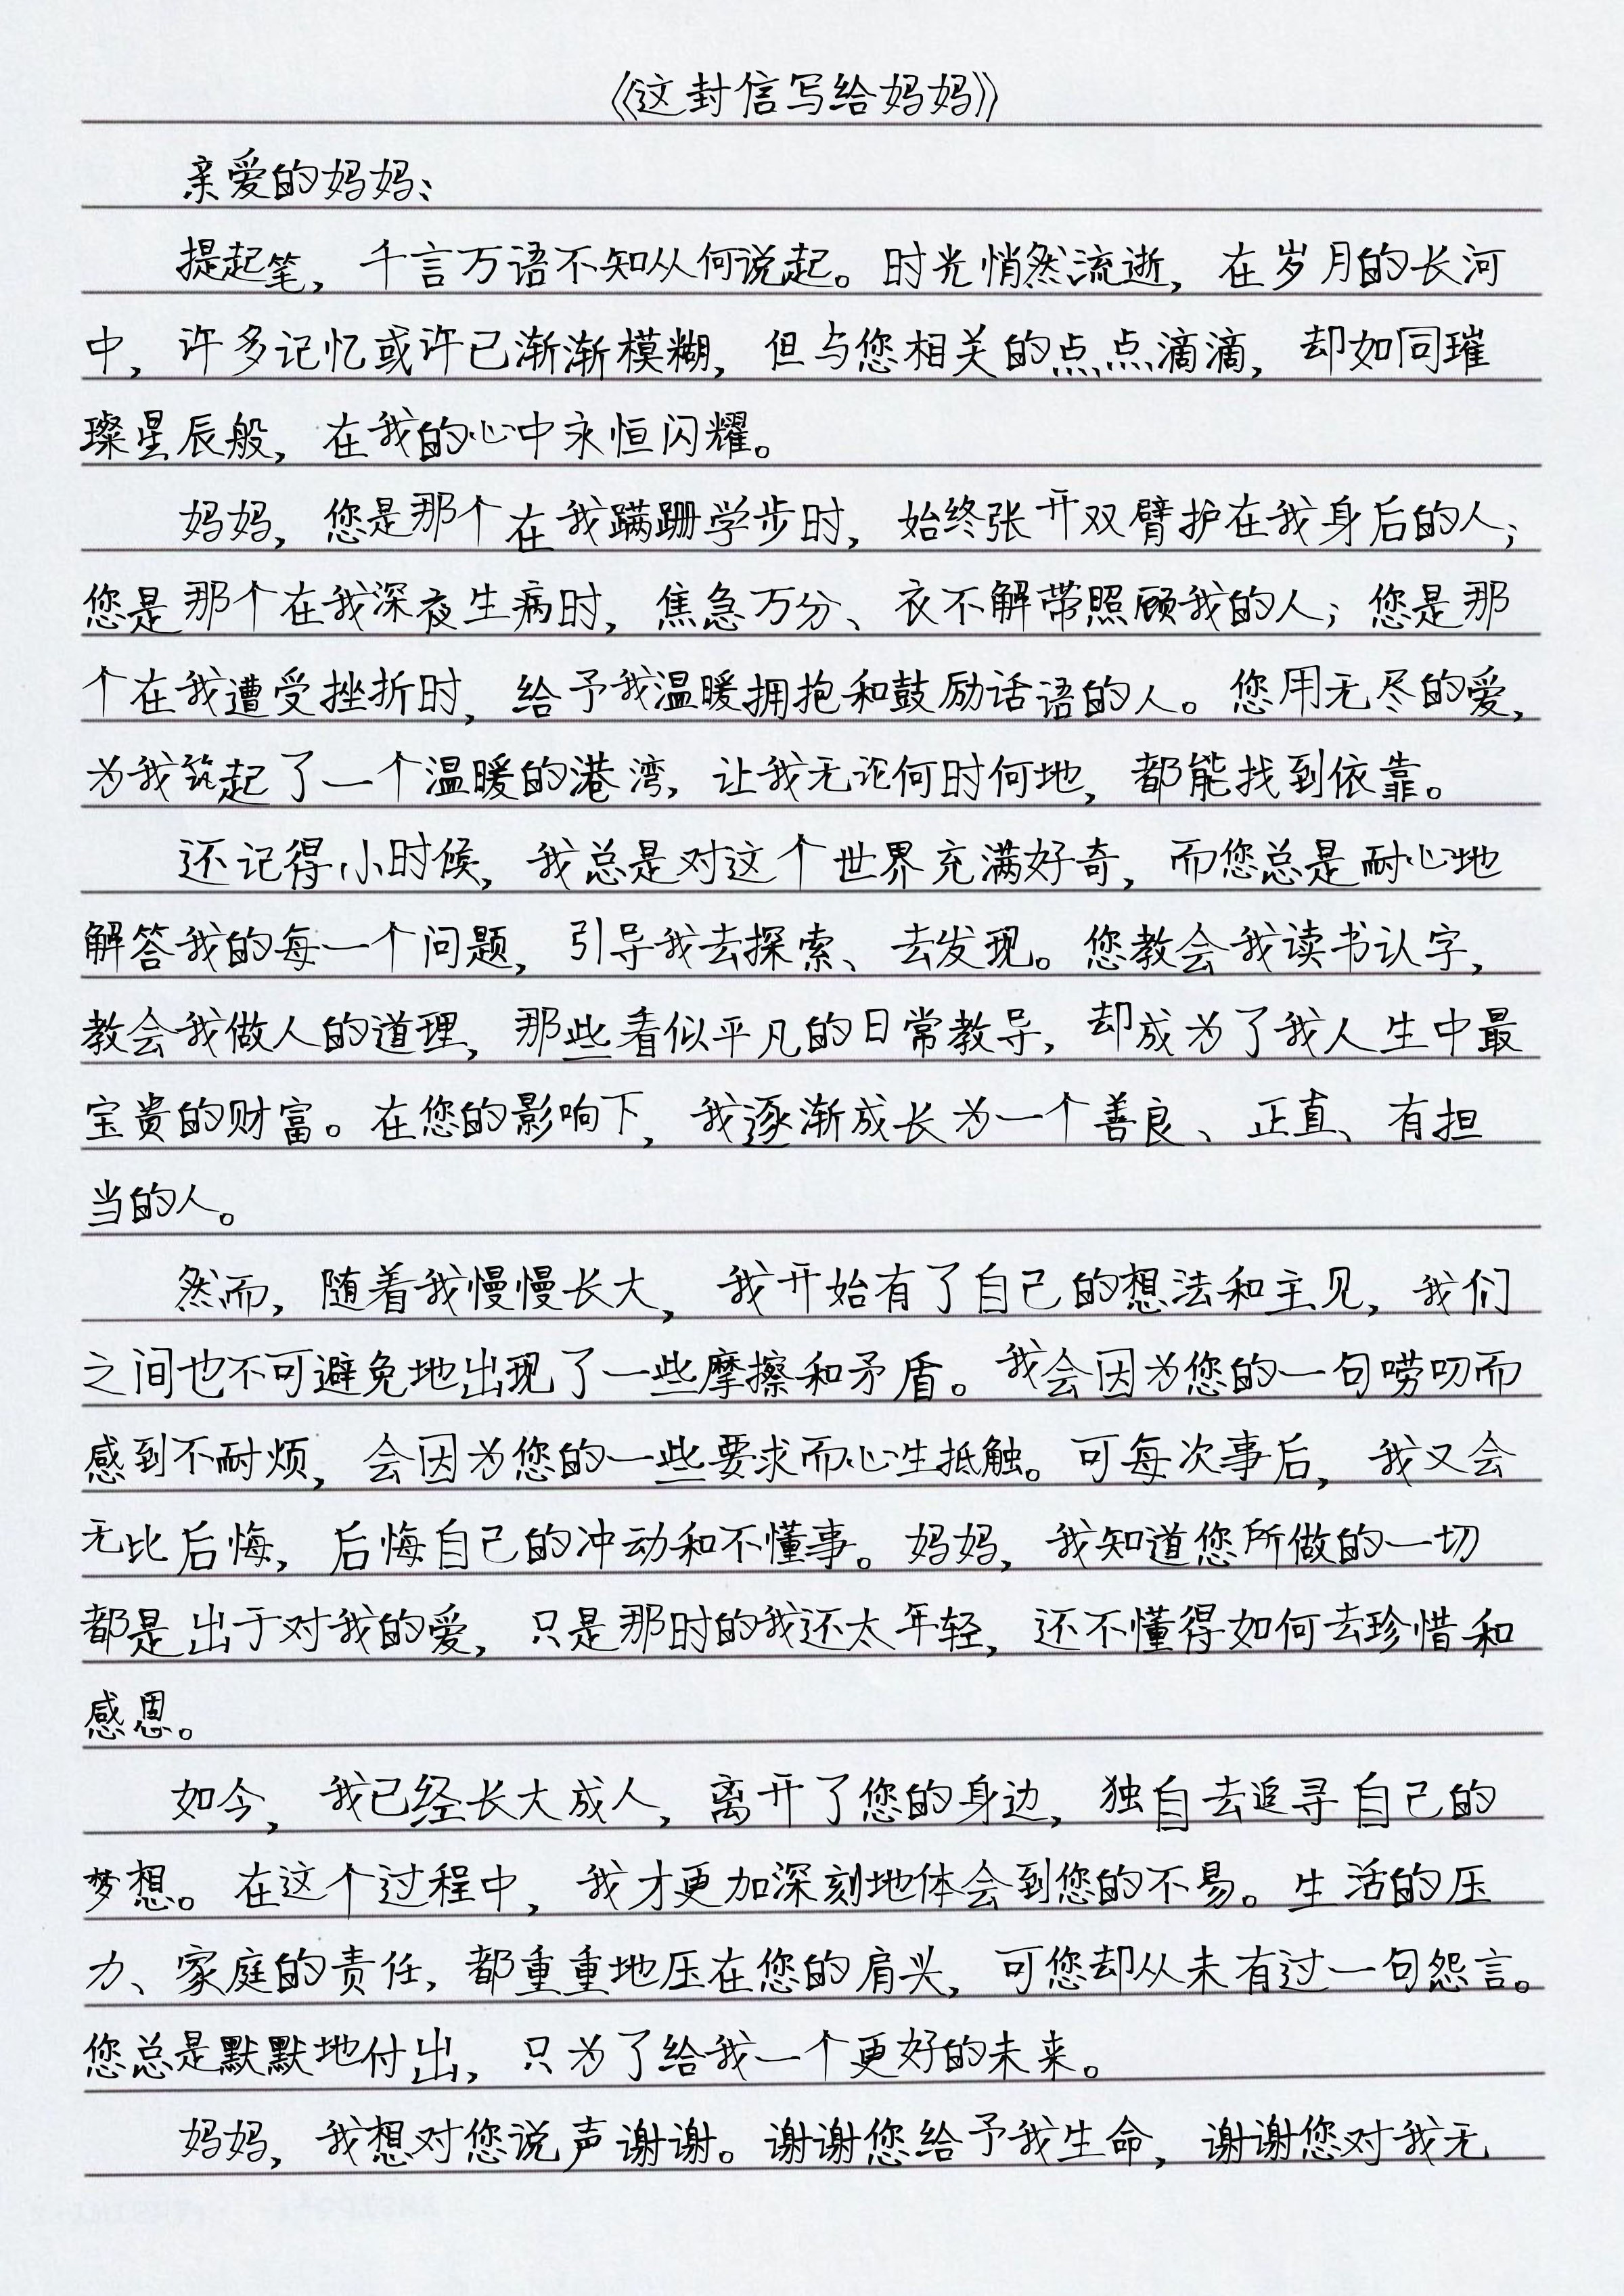 《这封信写给妈妈》
亲爱的妈妈：
提起笔，千言万语不知从何说起。时光悄然流逝，在岁月的长河
中，许多记忆或许已渐渐模糊，但与您相关的点点滴滴，却如同璀
璨星辰般，在我的心中永恒闪耀。
妈妈，您是那个在我蹒跚学步时，始终张开双臂护在我身后的人；
您是那个在我深夜生病时，焦急万分、衣不解带照顾我的人；您是那
个在我遭受挫折时，给予我温暖拥抱和鼓励话语的人。您用无尽的爱，
为我筑起了一个温暖的港湾，让我无论何时何地，都能找到依靠。
还记得小时候，我总是对这个世界充满好奇，而您总是耐心地
解答我的每一个问题，引导我去探索、去发现。您教会我读书认字，
教会我做人的道理，那些看似平凡的日常教导，却成为了我人生中最
宝贵的财富。在您的影响下，我逐渐成长为一个善良、正直、有担
当的人。
然而，随着我慢慢长大，我开始有了自己的想法和主见，我们
之间也不可避免地出现了一些摩擦和矛盾。我会因为您的一句唠叨而
感到不耐烦，会因为您的一些要求而心生抵触。可每次事后，我又会
无比后悔，后悔自己的冲动和不懂事。妈妈，我知道您所做的一切
都是出于对我的爱，只是那时的我还太年轻，还不懂得如何去珍惜和
感恩。
如今，我已经长大成人，离开了您的身边，独自去追寻自己的
梦想。在这个过程中，我才更加深刻地体会到您的不易。生活的压
力、家庭的责任，都重重地压在您的肩头，可您却从未有过一句怨言。
您总是默默地付出，只为了给我一个更好的未来。
妈妈，我想对您说声谢谢。谢谢您给予我生命，谢谢您对我无